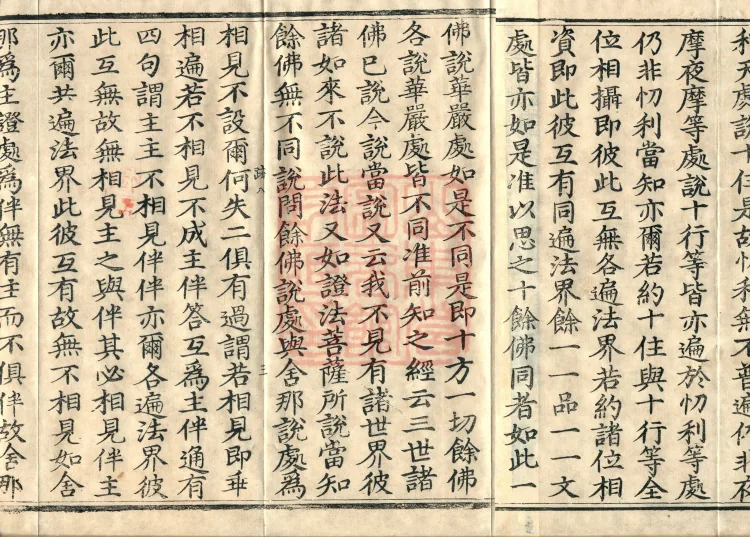 利天處說十住是故忉利無不普遍仍非夜
摩夜摩等處說十行等皆亦遍於忉利等處
仍非忉利當知亦爾若約十住與十行等全
位相攝即彼此互無各遍法界若約諸位相
資即此彼互有同遍法界餘一一品一一文
處皆亦如是准以思之十餘佛同者如此一
佛說華嚴處如是不同是即十方一切餘佛
各說華嚴處皆不同准前知之經云三世諸
佛已說今說當說又云我不見有諸世界彼
諸如來不說此法又如證法菩薩所說當知
餘佛無不同說問餘佛說處與舍那說處為
疏八 三
相見不設爾何失二俱有過謂若相見即乖
相遍若不相見不成主伴答互為主伴通有
四句謂主主不相見伴伴亦爾各遍法界彼
此互無故無相見主之與伴其必相見伴主
亦爾共遍法界此彼互有故無不相見如舍
那為主證處為伴無有主而不俱伴故舍那